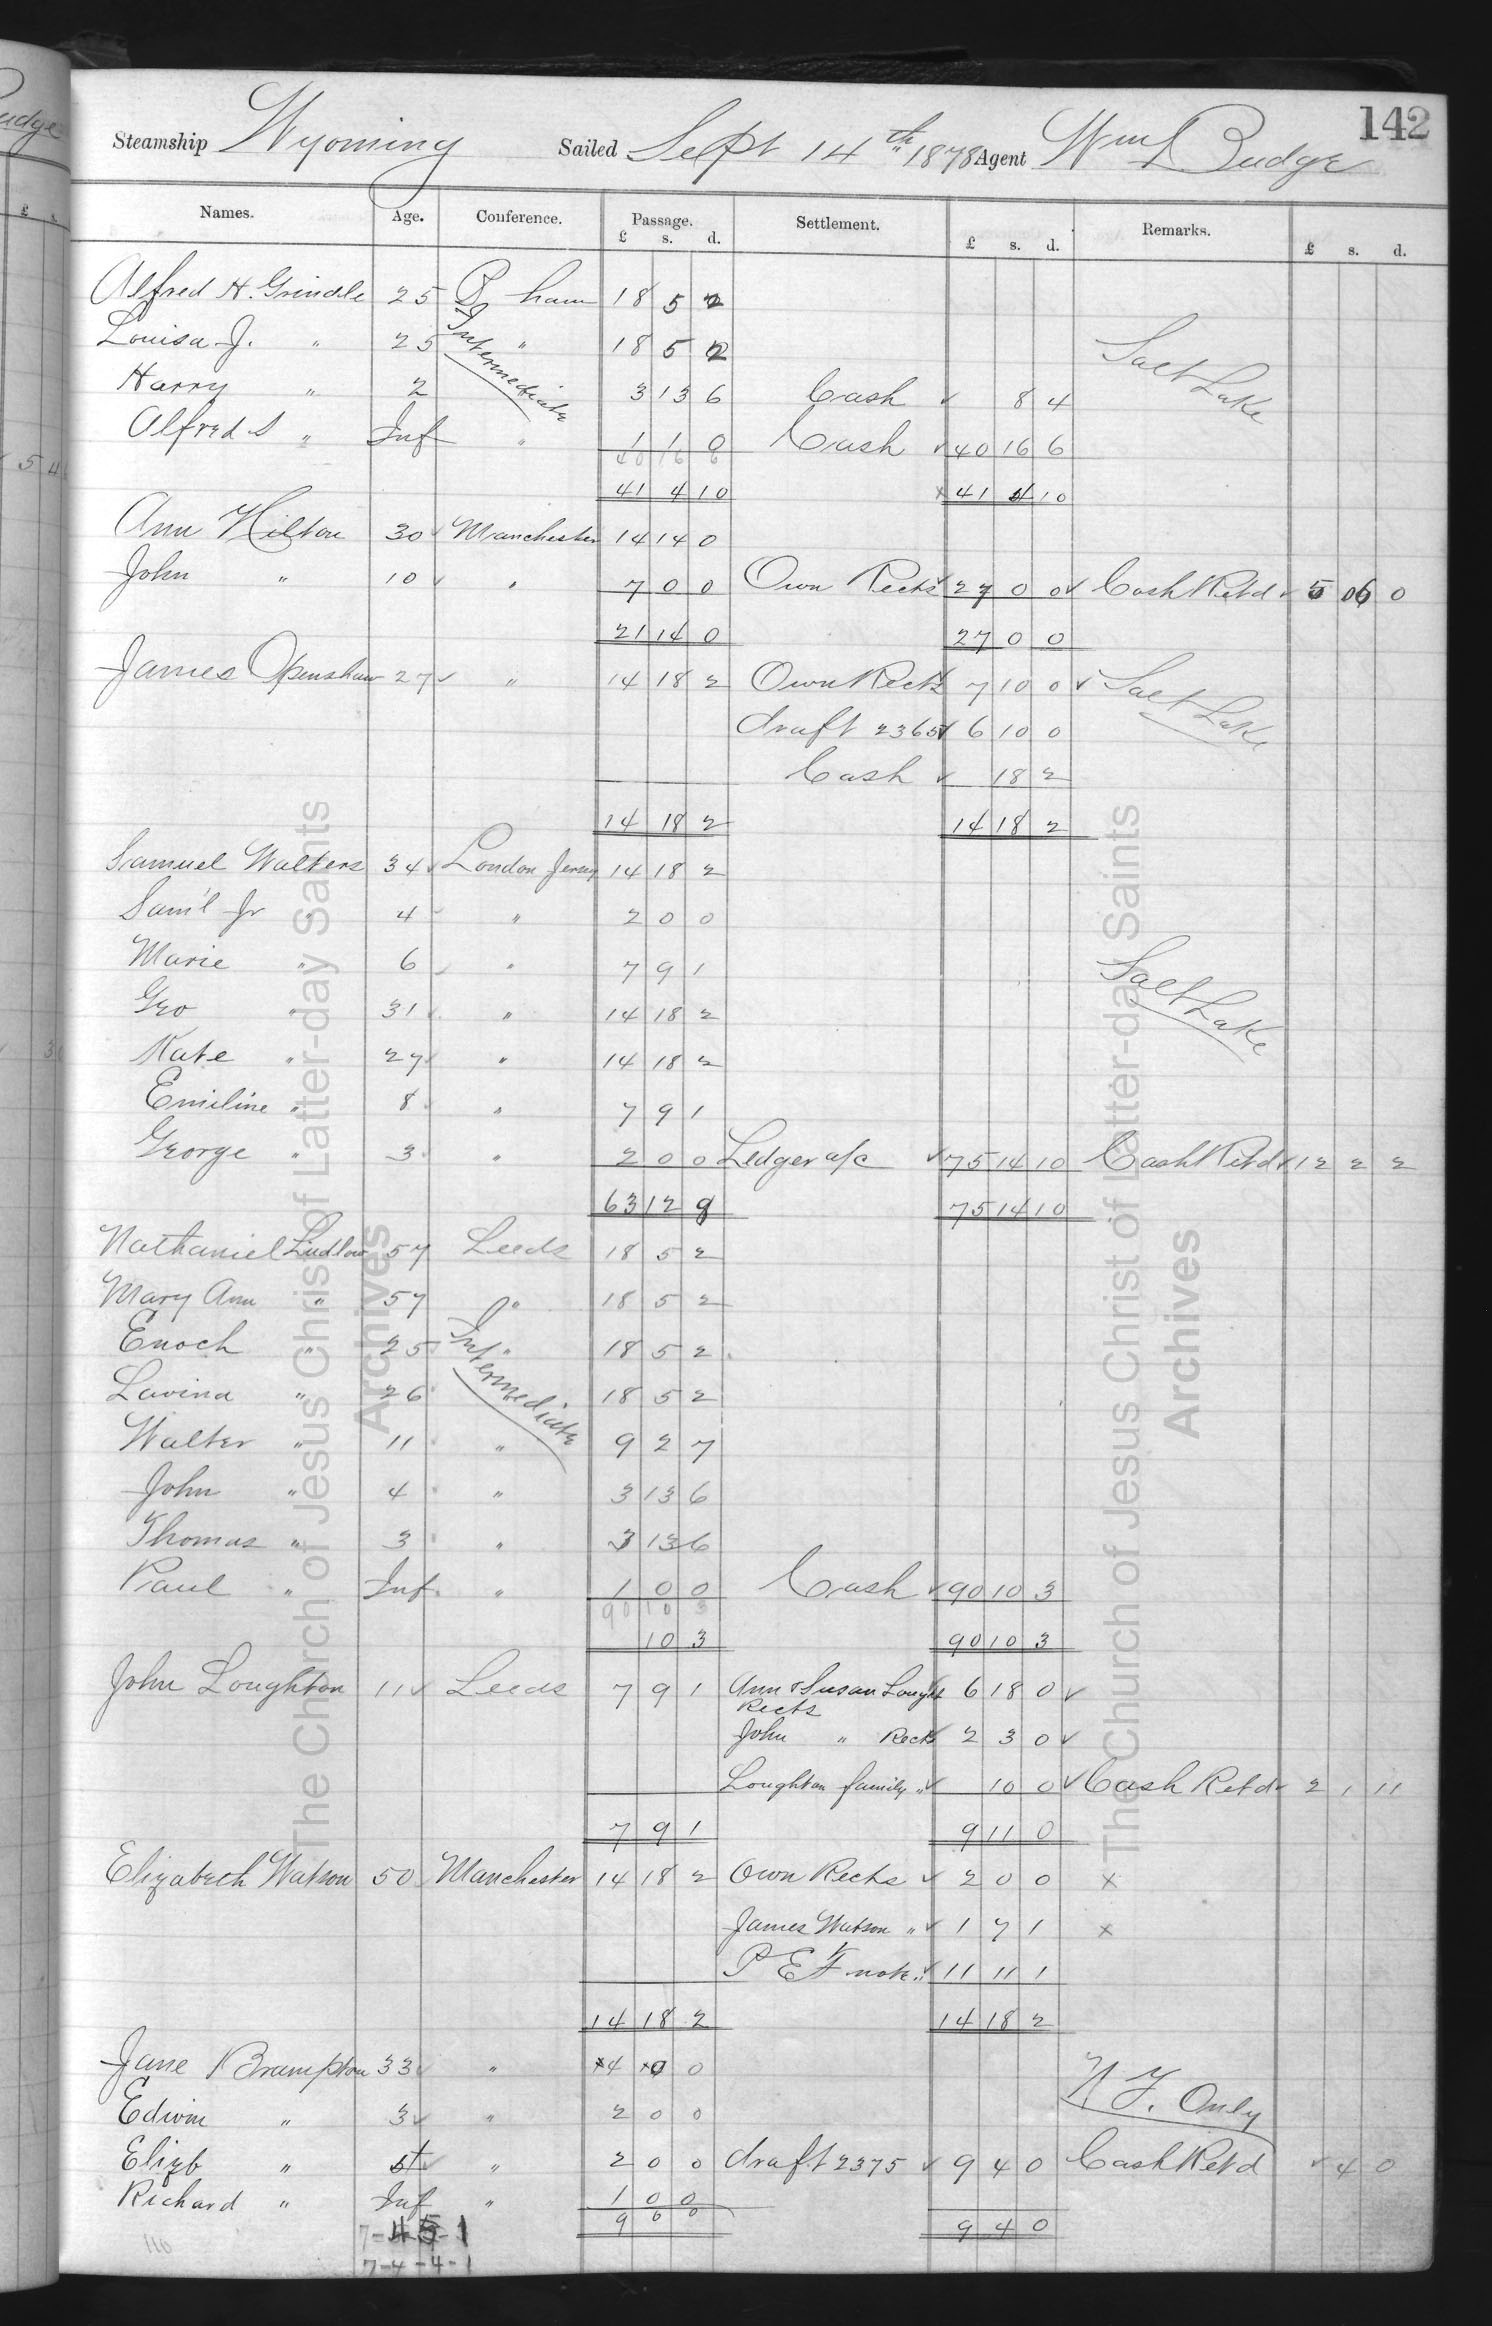 142
Steamship Wyoming Sailed Sept 14th 1878 Agent Wm Budge
Names. Age. Conference. Passage. Settlement. Remarks.
£ s. d. £ s. d. £ s. d.
Alfred H. Grindle 25 B ham 18 5 2
Louisa J. " 25 Intermediate " 18 5 2 Salt Lake
Harry " 2 3 13 6 Cash ✓ 8 4
Alfred S " Inf " 1 1 0 Cash ✓ 40 16 6
40 16 6
41 4 10 x 41 4 10
Ann Hilton 30 ✓ Manchester 14 14 0
John " 10 ✓ " 7 0 0 Own Rects ✓ 27 0 0 ✓ Cash Retd ✓ 5 06 0
21 14 0 27 0 0
James Openshaw 27 ✓ " 14 18 2 Own Rects 7 10 0 ✓ Salt Lake
draft 2365 ✓ 6 10 0
Cash ✓ 18 2
14 18 2 14 18 2
Samuel Walters 34 ✓ London Jersey 14 18 2
Sam'l Jr " 4 " 2 0 0
Marie " 6 ✓ " 7 9 1 Salt Lake
Geo " 31 ✓ " 14 18 2
Kate " 27 " 14 18 2
Emiline " 8 " 7 9 1
George " 3 " 2 0 0 Ledger a/c ✓ 75 14 10 Cash Retd ✓ 12 2 2
63 12 8 75 14 10
Nathaniel Ludlow 57 Leeds 18 5 2
Mary Ann " 57 " 18 5 2
Enoch " 25 Intermediate " 18 5 2
Lavina " 26 18 5 2
Walter " 11 " 9 2 7
John " 4 " 3 13 6
Thomas " 3 " 3 13 6
Paul " Inf " 1 0 0 Cash ✓ 90 10 3
90 10 3
10 3 90 10 3
John Loughton 11 ✓ Leeds 7 9 1 Ann & Susan Lought 6 18 0 ✓
Rects
John " Rects 2 3 0 ✓
Loughton family " ✓ 10 0 ✓ Cash Retd ✓ 2 1 11
7 9 1 9 11 0
Elizabeth Watson 50 Manchester 14 18 2 Own Rects ✓ 2 0 0 x
James Watson " ✓ 1 7 1 x
P E F note " ✓ 11 11 1
14 18 2 14 18 2
Jane Brampton 33 ✓ " 4 0 0
N Y. Only
Edwin " 3 ✓ " 2 0 0
Elizb " ✓ " 2 0 0 draft 2375 ✓ 9 4 0 Cash Retd ✓ 4 0
Richard " Inf " 1 0 0
9 0 0 9 4 0
7-45-1
7-4-4-1
110
The Church of Jesus Christ of Latter-day Saints
Archives
The Church of Jesus Christ of Latter-day Saints
Archives